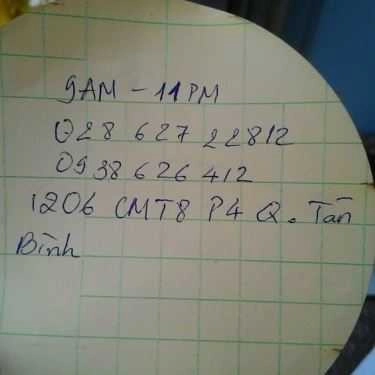 9AM - 11PM
028 627 22812
0938 626 412
1206 CMT8 P4 Q. Tân
Bình